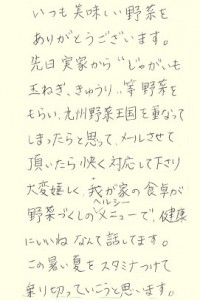 いつも美味しい野菜を
ありがとうございます。
先日実家から"じゃがいも
玉ねぎ、きゅうり"等野菜を
もらい、九州野菜王国と重なって
しまったらと思って、メールさせて
頂いたら快く対応して下さり
大変嬉しく、我が家の食卓が
野菜づくしのヘルシーメニューで、健康
にいいねなんて話してます。
この暑い夏をスタミナつけて
乗り切っていこうと思います。